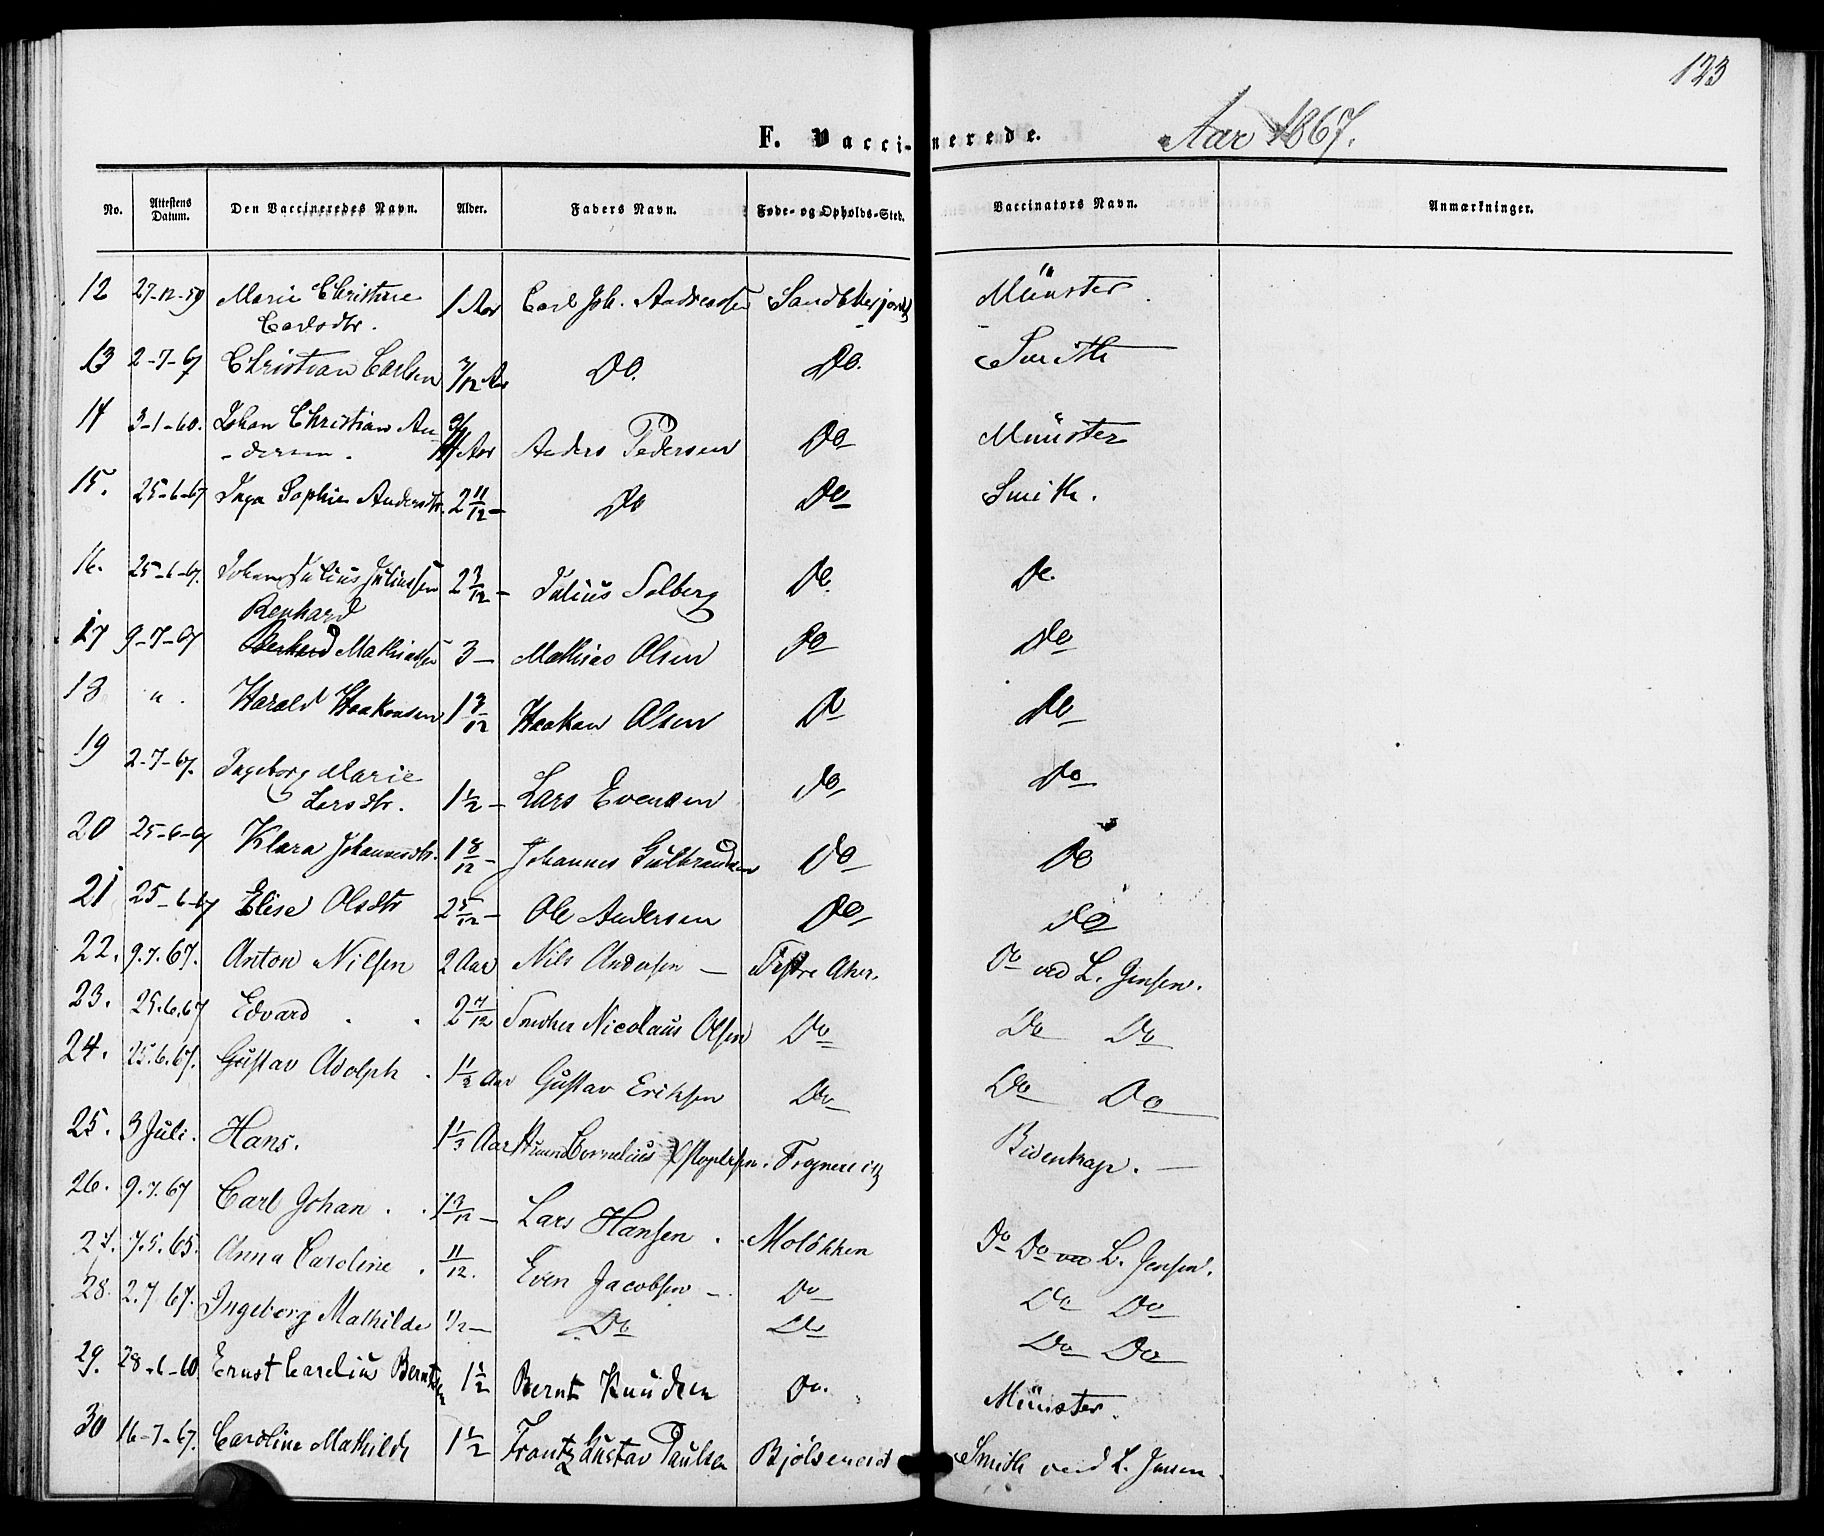 123
F. Vaccinerede. Aar 1867.
No. Attestens Datum. Den Vaccineredes Navn. Alder. Faders Navn. Føde- og Opholds-Sted. Vaccinators Navn. Anmærkninger.
12 27-12-59 Marie Christine 1 Aar Carl Joh. Andreassen Münster
Carlsdtr.
13 2-7-67 Christian Carlsen 7/12 Aar Do. Do. Smith
14 3-1-60. Johan Christian An-
- dersen. Aar Anders Pedersen Do Münster
15. 25-6-67 Inga Sophie Andersdtr. 2 11/12 - Do Do Smith.
16. 25-6-67. Johan Julius Juliussen 2 3/12 - Julius Solberg Do. Do.
Renhard
17 9-7-67 Mathiassen 3 - Mathias Olsen Do Do
18 " . Harald Haakonsen 1 3/12 Haakon Olsen Do Do
19 2-7-67. Ingeborg Marie
Larsdtr. 1 1/2 - Lars Evensen Do Do
20 25-6-67 Klara Johannesdtr. 1 8/12 - Johannes Gulbrandsen Do Do
21 25-6-67 Elise Olsdtr 2 5/12 - Ole Andersen Do Do
22. 9.7.67. Anton Nilsen 2 Aar Nils Andersen - Aker. Do ved L. Jensen.
23. 25.6.67 Edvard . . 2 7/12 Snedker Nicolaus Olsen Do Do Do
24. 25.6.67. Gustav Adolph . 1 1/2 Aar Gustav Eriksen Do Do Do
25. 3 Juli. Hans. 1 1/3 Aar Cornelius Bidenkap. -
26. 9.7.67 Carl Johan . . - Lars Hansen . . Moløkken Do Do ved L. Jensen.
27. 7.5.65. Anna Caroline . 11/12. Even Jacobsen - Do Do Do
28. 2.7 67. Ingeborg Mathilde 1/2 - Do Do Do Do
29. 28-6-60 Ernst Carelius Berntsen 1 1/2 Bernt Knudsen Do. Münster.
30 16-7-67. Caroline Mathilde 1 1/2 Frantz Gustav Paulsen Bjølseneiet Smith ved L. Jensen